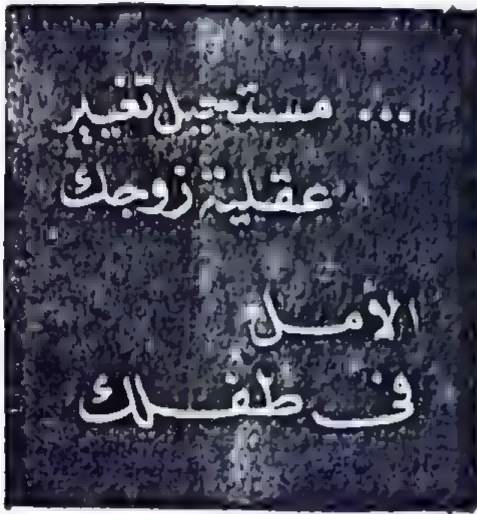 ... مستحيل تغير
عقلية زوجك
الأمل
فى طفلك